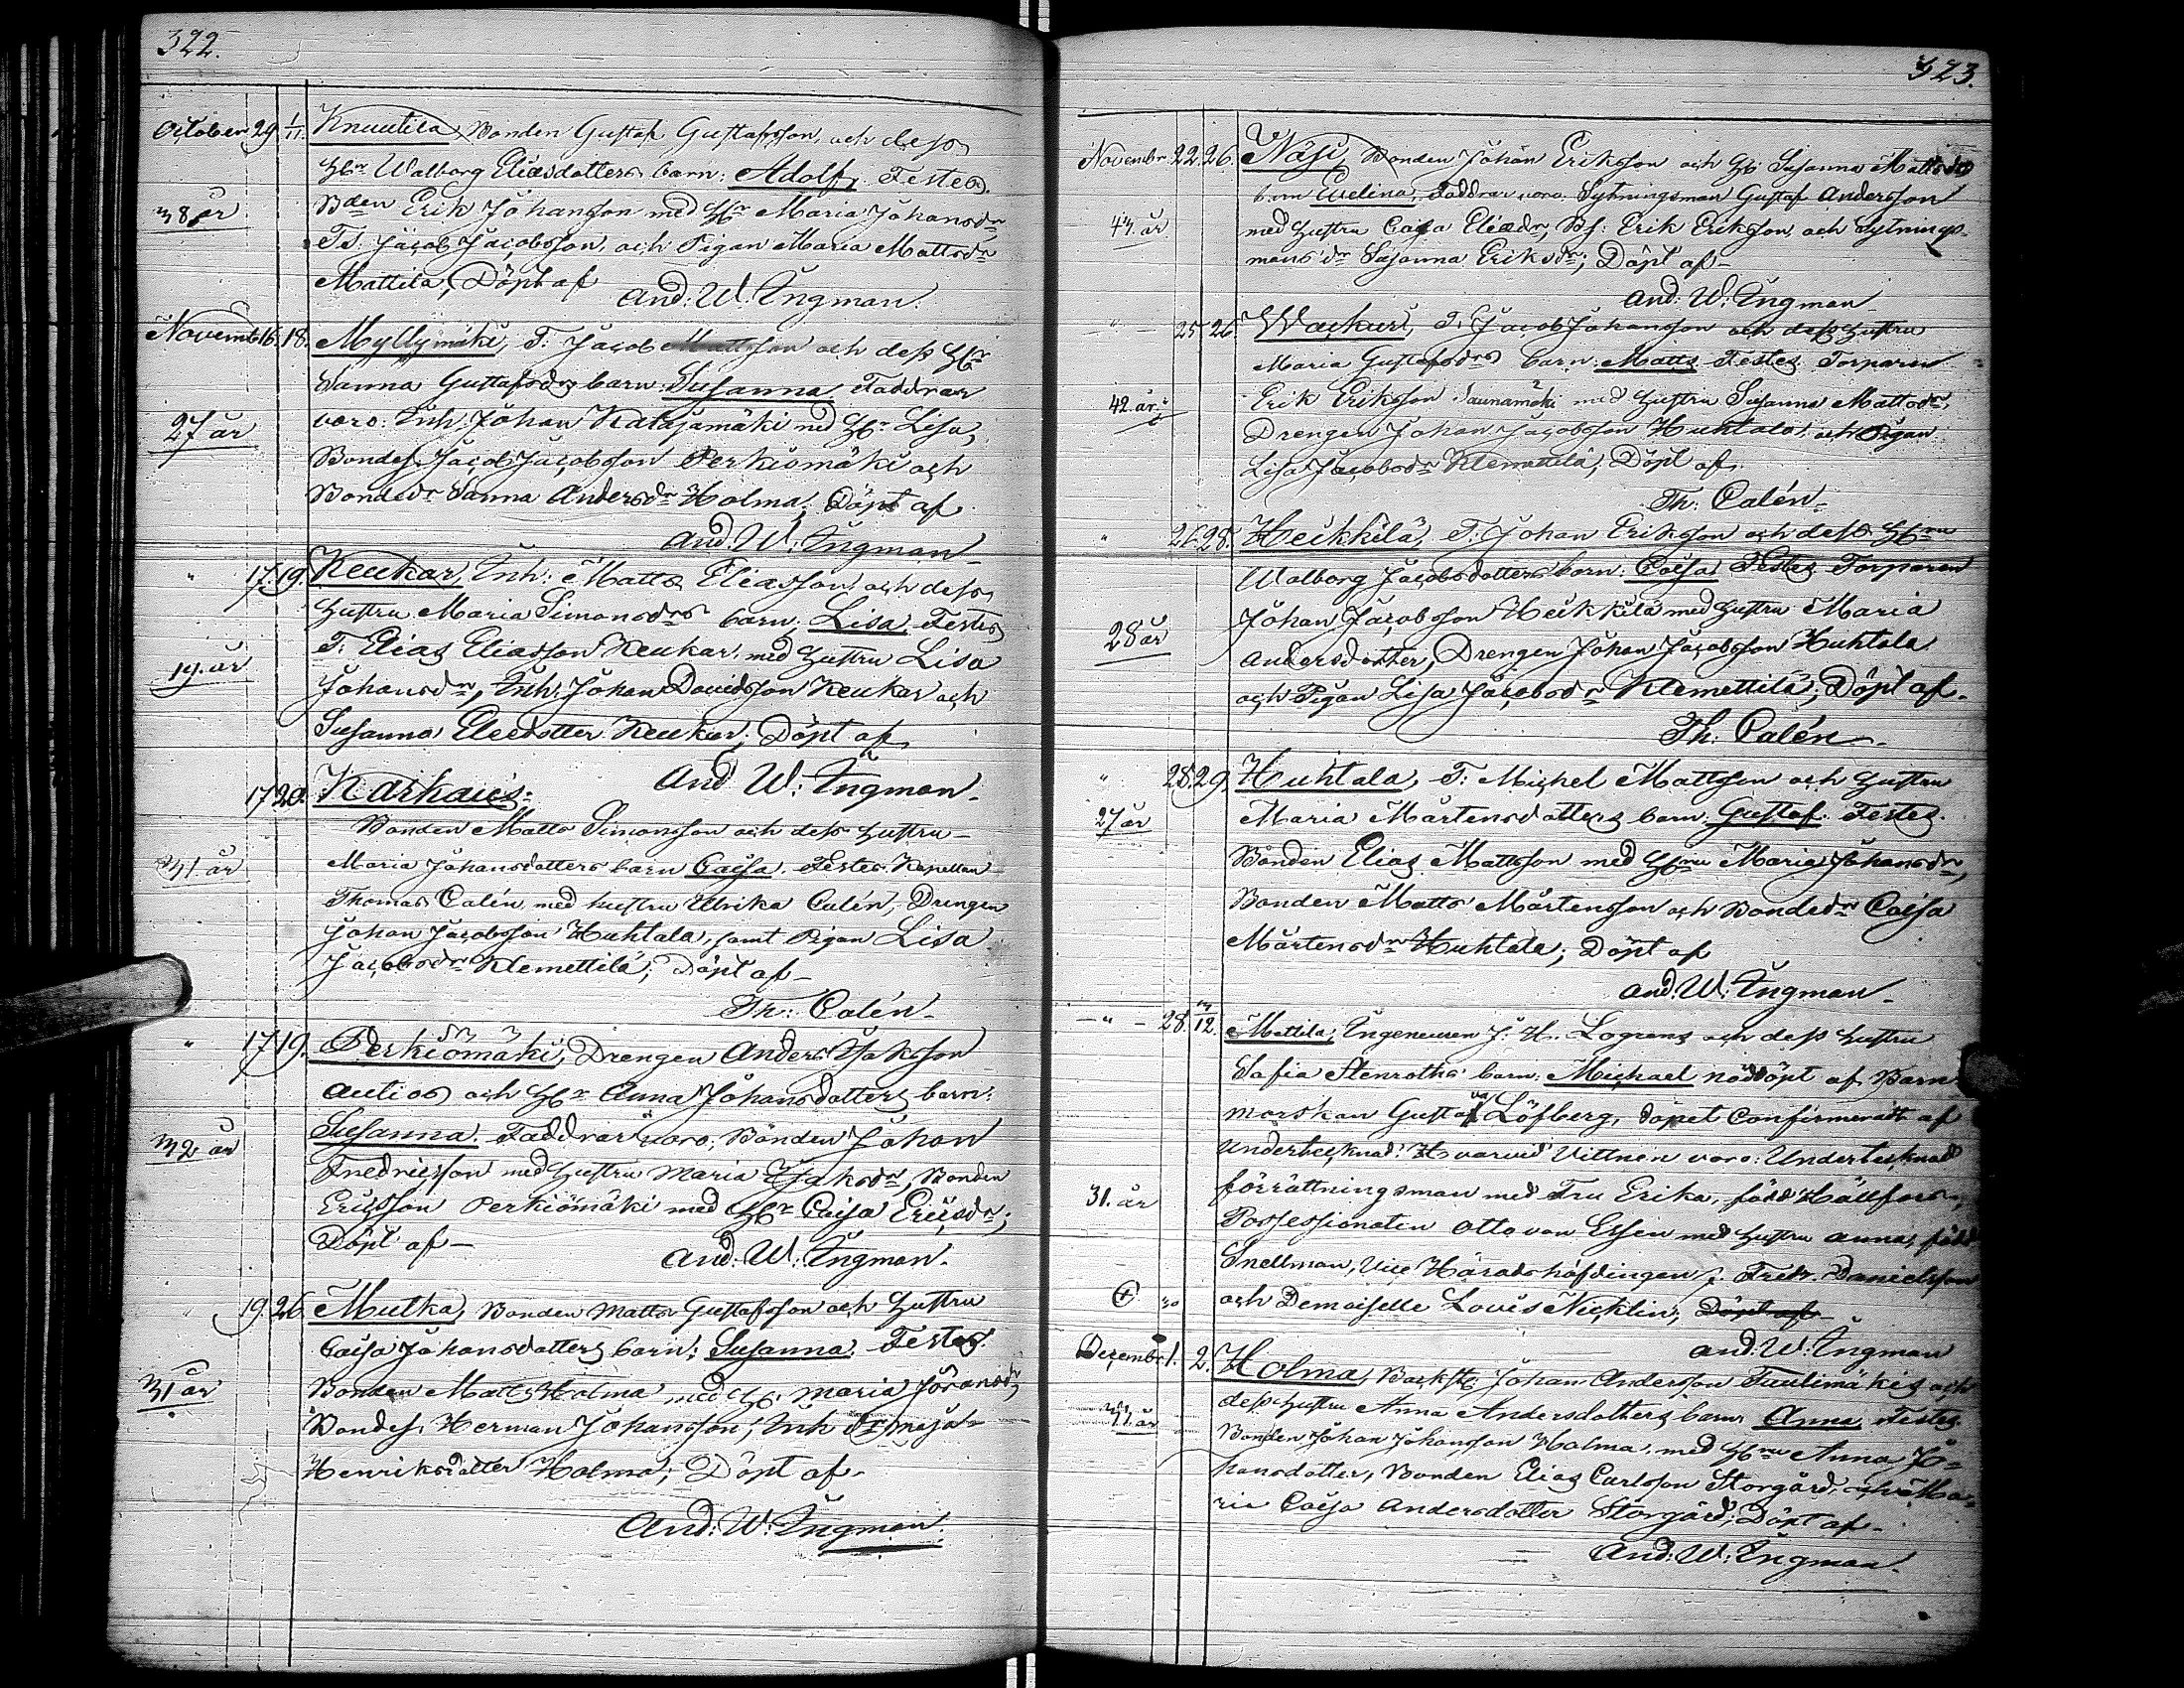 322.
October 29. 1/11. Knuutila, Bonden Gustaf Gustafsson, och dess
H:r Walborg Eliasdotters barn: Adolf. Testes.
38 år Bden Erik Johansson med H:r Maria Johansdr
T:S: Jacob Jacobsson, och Pigan Maria Mattsdr
Mattila; Döpt af
And: W: Ingman.
Novemb 16. 18. Myllymäki, T: Jacob Mattsson och dess H:r
Sanna Gustafsdrs barn: Susanna. Faddrar
27 år voro: Inh: Johan Katajamäki med H:r Lisa,
Bondes. Jacob Jacobsson Perkiömäki och
Bondedr Sanna Andersdr Holma; Döpt af
And. W: Ingman
" 17. 19. Keukar, Inh: Matts Eliasson och dess
hustru Maria Simonsdrs barn: Lisa. Testes
19. år T: Elias Eliasson Keukar, med hustru Lisa
Johansdr, Inh: Johan Davidsson Keukar och
Susanna Eliedotter Keukar; Döpt af
And W: Ingman.
17 20. Karhais:
Bonden Matts Simonsson och dess hustru
31. år Maria Johansdotters barn Caisa. Testes Kapellan
Thomas Calén med hustru Ulrika Calén, Drengen
Johan Jacobsson Huhtala, samt Pigan Lisa
Jacobsdr Klemettilä; Döpt af
Th: Calén
" 17 19. Perkiömäki, Drengen Anders Isaksson
Autios och H:r Anna Johansdotters barn:
32 år Susanna. Faddrar voro: Bonden Johan
Fredricsson med hustru Maria Isaksdr, Bonden
Ericsson Perkiömäki med H:r Caisa Ericsdr;
Döpt af
And: W: Ingman.
" 19. 26. Mutka, Bonden Matts Gustafsson och hustru
Caisa Johansdotters barn: Susanna. Testes.
31 år Bonden Matts Holma med H: Maria Göransdr,
Bondes. Herman Johansson, Inh Maja
Henriksdotter Holma; Döpt af
And: W: Ingman.
323.
Novembr 22. 26. Näsi, Bonden Johan Eriksson och H: Susanna Mattsdrs
barn Evelina, Faddrar voro: Sytningsman Gustaf Andersson
44. år med hustru Caisa Eliædr, Bs: Erik Eriksson, och Sytnings-
mans dr Susanna Eriksdr; Döpt af
And: W: Ingman
25 26. Wackuri, T: Jacob Johansson och dess hustru
Maria Gustafsdrs barn: Matts. Testes. Torparen
42. år. Erik Eriksson Saunamäki med hustru Susanna Mattsdr,
Drengen Johan Jacobsson Huhtala, och Pigan
Lisa Jacobsdr Klemettilä; Döpt af
Th: Calén
" 26. 28. Heikkilä, T: Johan Eriksson och dess H:ru
Walborg Jacobsdotters barn: Caisa. Testes Torparen
28 år Johan Jacobsson Heikkilä med hustru Maria
Andersdotter, Drengen Johan Jacobsson Huhtala
och Pigan Lisa Jacobsdr Klemettilä; Döpt af
Th: Calén
" 28. 29. Huhtala, T: Michel Mattsson och hustru
27 år Maria Mårtensdotters barn: Gustaf. Testes.
Bonden Elias Mattsson med H:ru Maria Johansdr,
Bonden Matts Mårtensson och Bondedr Caisa
Mårtensdr Huhtala; Döpt af
And. W. Ingman
" 28. 3/12. Mattila, Ingeneuren J: H. Logrens och dess hustru
Sofia Stenroths barn: Michael nöddöpt af Barn
morskan Gustava Löfberg, döpet Confirmeradt af
Undertecknad. Hvarvid Vittnen voro: Undertecknad
31. år förrättningsman med Fru Erika, född Hällfors,
Possessionaten Otto von Essen med hustru Anna, född
Snellman, Vice Häradshöfdingen J. Fredr. Danielsson
och Demoiselle Lovis Nicklin; Döpt af
And. W: Ingman
Decembr 1. 2. Holma, Backst: Johan Andersson Tuulimäkis och
dess hustru Anna Andersdotters barn Anna Testes
Bonden Johan Johansson Holma med H:ru Anna Jo-
hansdotter, Bonden Elias Carlsson Storgård, och Ma-
ria Caisa Andersdotter Storgård; Döpt af
And: W: Ingman.